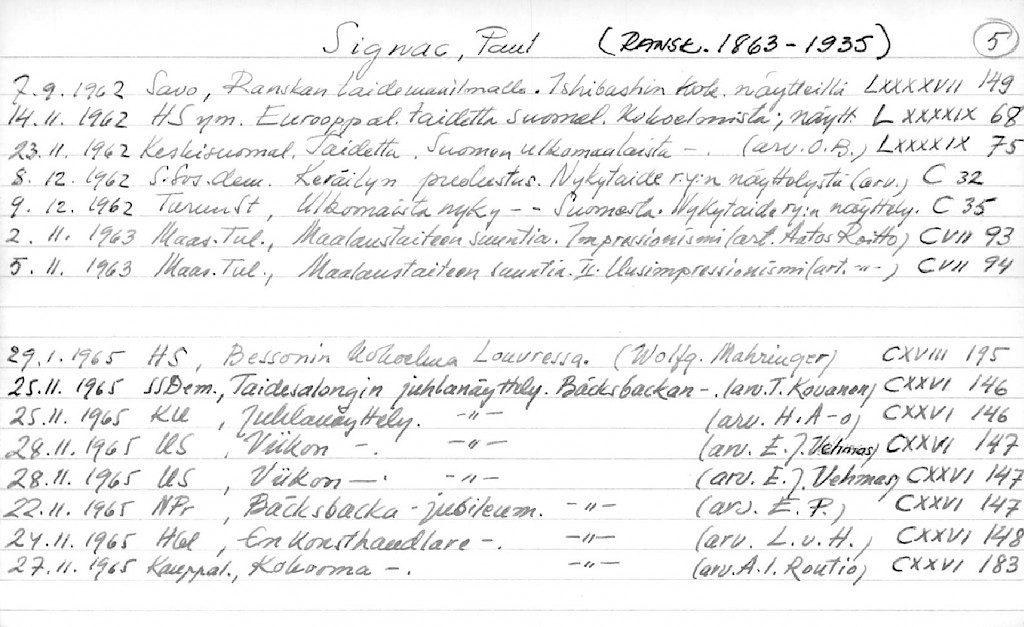 Signac, Paul (RANSK. 1863-1935) 5
7.9.1962 Savo, Ranskan taidemaailmalla. Ishibashin kok. näytteillä LXXXXVII 149
14.11.1962 HS ym. Eurooppal. taidetta suomal. kokoelmista; näytt. LXXXXIX 68
23.11.1962 Keskisuomal. Taidetta. Suomen ulkomaalaista -. (arv. O.B.) LXXXXIX 75
8.12.1962 S.Sos.dem. Keräilyn puolustus. Nykytaide r.y:n näyttelystä (arv.) C 32
9.12.1962 TurunSt, Ulkomaista nyky -- Suomesta. Nykytaide ry:n näyttely. C 35
2.11.1963 Maas.Tul., Maalaustaiteen suuntia. Impressionismi (art. Aatos Roitto) CVII 93
5.11.1963 Maas.Tul., Maalaustaiteen suuntia. II. Uusimpressionismi (art. -"-) CVII 94
29.1.1965 HS, Bessonin kokoelma Louvressa. (Wolfg. Mahringer) CXVIII 195
25.11.1965 SSDem., Taidesalongin juhlanäyttely. Bäcksbackan -. (arv. T. Kovanen) CXXVI 146
25.11.1965 KU, Juhlanäyttely. -"- (arv. H. A-o) CXXVI 146
28.11.1965 US, Viikon -. -"- (arv. E. J. Vehmas) CXXVI 147
28.11.1965 US, Viikon -. -"- (arv. E. J. Vehmas) CXXVI 147
22.11.1965 NPr, Bäcksbacka-jubileum. -"- (arv. E. P.) CXXVI 147
24.11.1965 Hbl, En konsthandlare -. -"- (arv. L. v. H.) CXXVI 148
27.11.1965 Kauppal., Kokooma -. -"- (arv. A. I. Routio) CXXVI 183